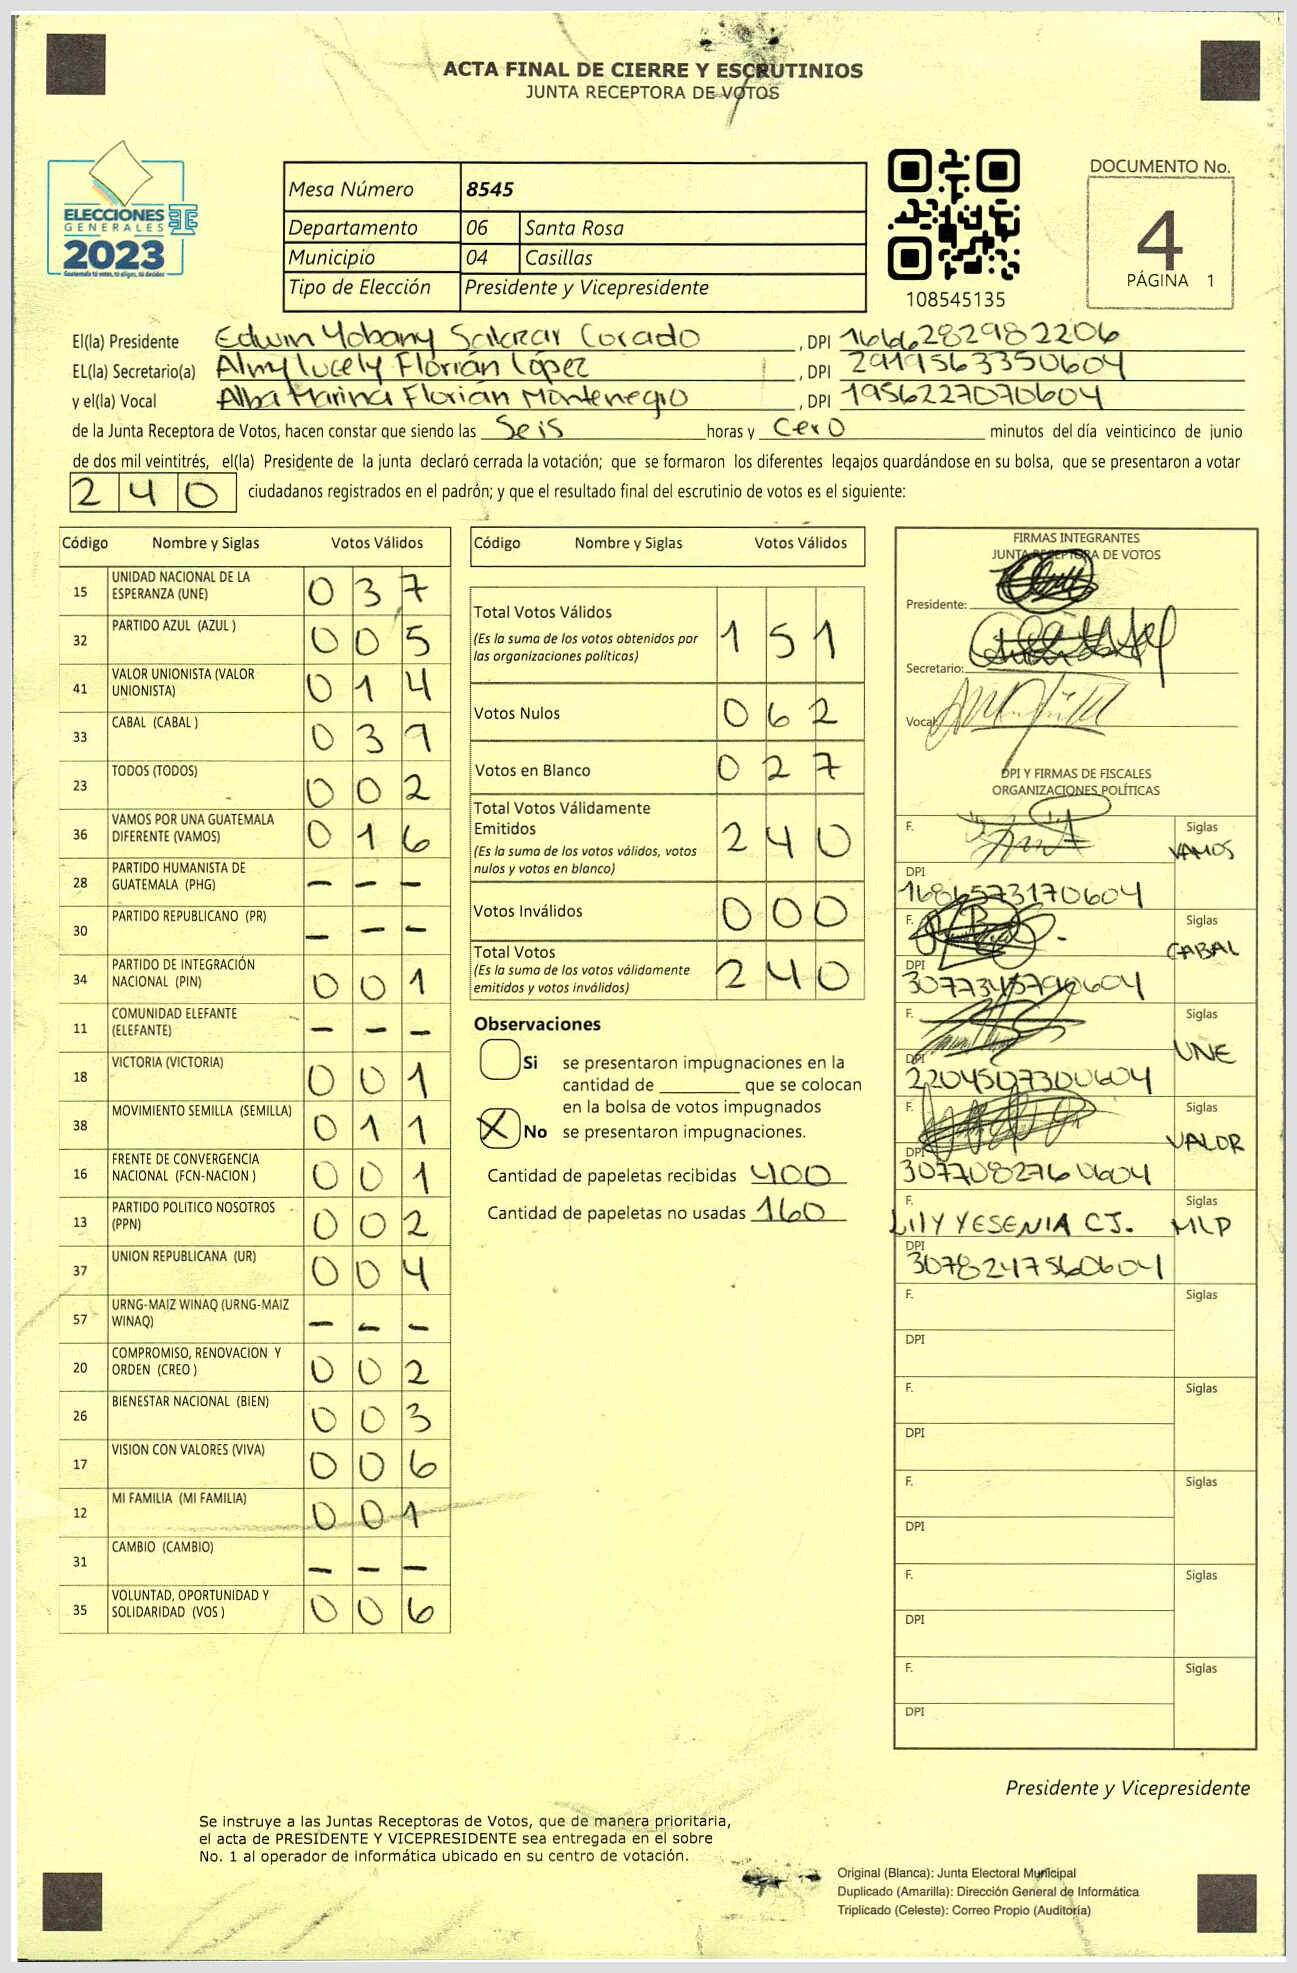 ACTA FINAL DE CIERRE Y ESCRUTINIOS
JUNTA RECEPTORA DE VOTOS
ELECCIONES
GENERALES
2023
Guatemala tú votas, tú eliges, tú decides
Mesa Número 8545
Departamento 06 Santa Rosa
Municipio 04 Casillas
Tipo de Elección Presidente y Vicepresidente
108545135
DOCUMENTO No.
4
PÁGINA 1
El(la) Presidente Edwin Yobany Salazar Corado , DPI 1666282982206
EL(la) Secretario(a) Almy lucely Florián López , DPI 2919563350604
y el(la) Vocal Alba Marina Florián Montenegro , DPI 1956227070604
de la Junta Receptora de Votos, hacen constar que siendo las Seis horas y Cero minutos del día veinticinco de junio
de dos mil veintitrés, el(la) Presidente de la junta declaró cerrada la votación; que se formaron los diferentes legajos guardándose en su bolsa, que se presentaron a votar
240 ciudadanos registrados en el padrón; y que el resultado final del escrutinio de votos es el siguiente:
Código Nombre y Siglas Votos Válidos
15 UNIDAD NACIONAL DE LA ESPERANZA (UNE) 037
32 PARTIDO AZUL (AZUL ) 005
41 VALOR UNIONISTA (VALOR UNIONISTA) 014
33 CABAL (CABAL ) 039
23 TODOS (TODOS) 002
36 VAMOS POR UNA GUATEMALA DIFERENTE (VAMOS) 016
28 PARTIDO HUMANISTA DE GUATEMALA (PHG) - - -
30 PARTIDO REPUBLICANO (PR) - - -
34 PARTIDO DE INTEGRACIÓN NACIONAL (PIN) 001
11 COMUNIDAD ELEFANTE (ELEFANTE) - - -
18 VICTORIA (VICTORIA) 001
38 MOVIMIENTO SEMILLA (SEMILLA) 011
16 FRENTE DE CONVERGENCIA NACIONAL (FCN-NACION ) 001
13 PARTIDO POLITICO NOSOTROS (PPN) 002
37 UNION REPUBLICANA (UR) 004
57 URNG-MAIZ WINAQ (URNG-MAIZ WINAQ) - - -
20 COMPROMISO, RENOVACION Y ORDEN (CREO ) 002
26 BIENESTAR NACIONAL (BIEN) 003
17 VISION CON VALORES (VIVA) 006
12 MI FAMILIA (MI FAMILIA) 001
31 CAMBIO (CAMBIO) - - -
35 VOLUNTAD, OPORTUNIDAD Y SOLIDARIDAD (VOS ) 006
Código Nombre y Siglas Votos Válidos
Total Votos Válidos 151
(Es la suma de los votos obtenidos por
las organizaciones políticas)
Votos Nulos 062
Votos en Blanco 027
Total Votos Válidamente
Emitidos 240
(Es la suma de los votos válidos, votos
nulos y votos en blanco)
Votos Inválidos 000
Total Votos 240
(Es la suma de los votos válidamente
emitidos y votos inválidos)
Observaciones
Si se presentaron impugnaciones en la
cantidad de ________ que se colocan
en la bolsa de votos impugnados
X No se presentaron impugnaciones.
Cantidad de papeletas recibidas 400
Cantidad de papeletas no usadas 160
FIRMAS INTEGRANTES
JUNTA RECEPTORA DE VOTOS
Presidente:
Secretario:
Vocal:
DPI Y FIRMAS DE FISCALES
ORGANIZACIONES POLÍTICAS
F. Siglas VAMOS
DPI 1686573170604
F. Siglas CABAL
DPI 3077345790604
F. Siglas UNE
DPI 2204507300604
F. Siglas VALOR
DPI 3077082760604
F. LilY YESENIA CJ. Siglas MLP
DPI 3078247560604
F. Siglas
DPI
F. Siglas
DPI
F. Siglas
DPI
F. Siglas
DPI
F. Siglas
DPI
Presidente y Vicepresidente
Se instruye a las Juntas Receptoras de Votos, que de manera prioritaria,
el acta de PRESIDENTE Y VICEPRESIDENTE sea entregada en el sobre
No. 1 al operador de informática ubicado en su centro de votación.
Original (Blanca): Junta Electoral Municipal
Duplicado (Amarilla): Dirección General de Informática
Triplicado (Celeste): Correo Propio (Auditoría)